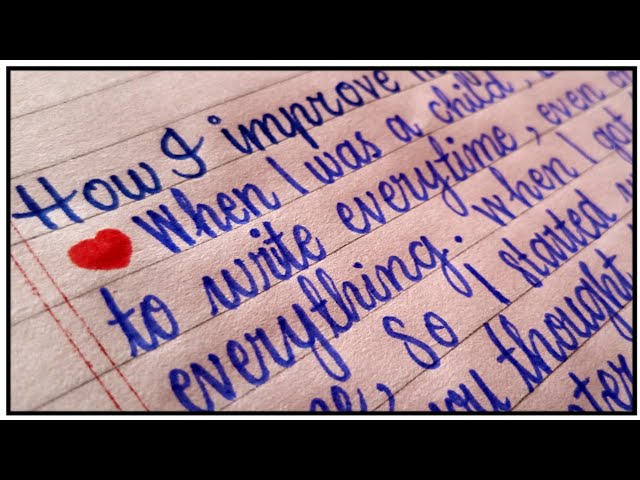 How I improve
When I was a child,
to write everytime, even
everything. When I got
so I started
you thought